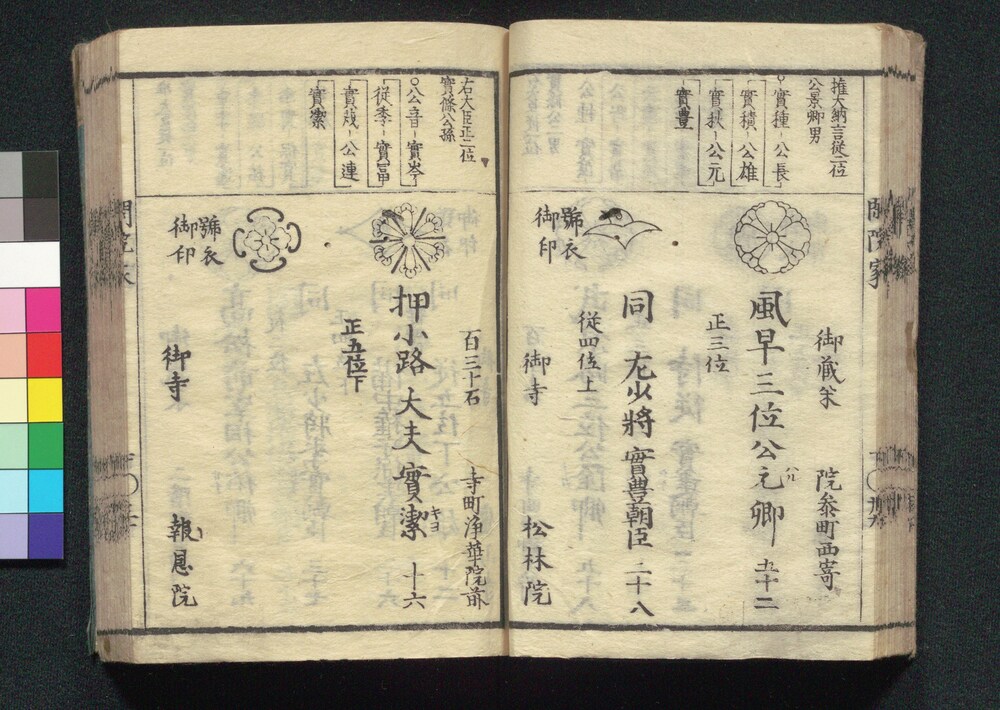 権大納言従一位
公景卿男
實種 公長
實積 公雄
實秋 公元
實豊
御蔵米
院参町西寄
風早三位公元卿 五十二
正三位
同 左少将實豊朝臣 二十八
従四位上
號衣
御印
御寺
松林院
右大臣正二位
實條公孫
公音 實岑
従季 實冨
實茂 公連
實潔
百三十石
寺町浄華院前
押小路大夫實潔 十六
キヨ
正五位下
號衣
御印
御寺
報恩院